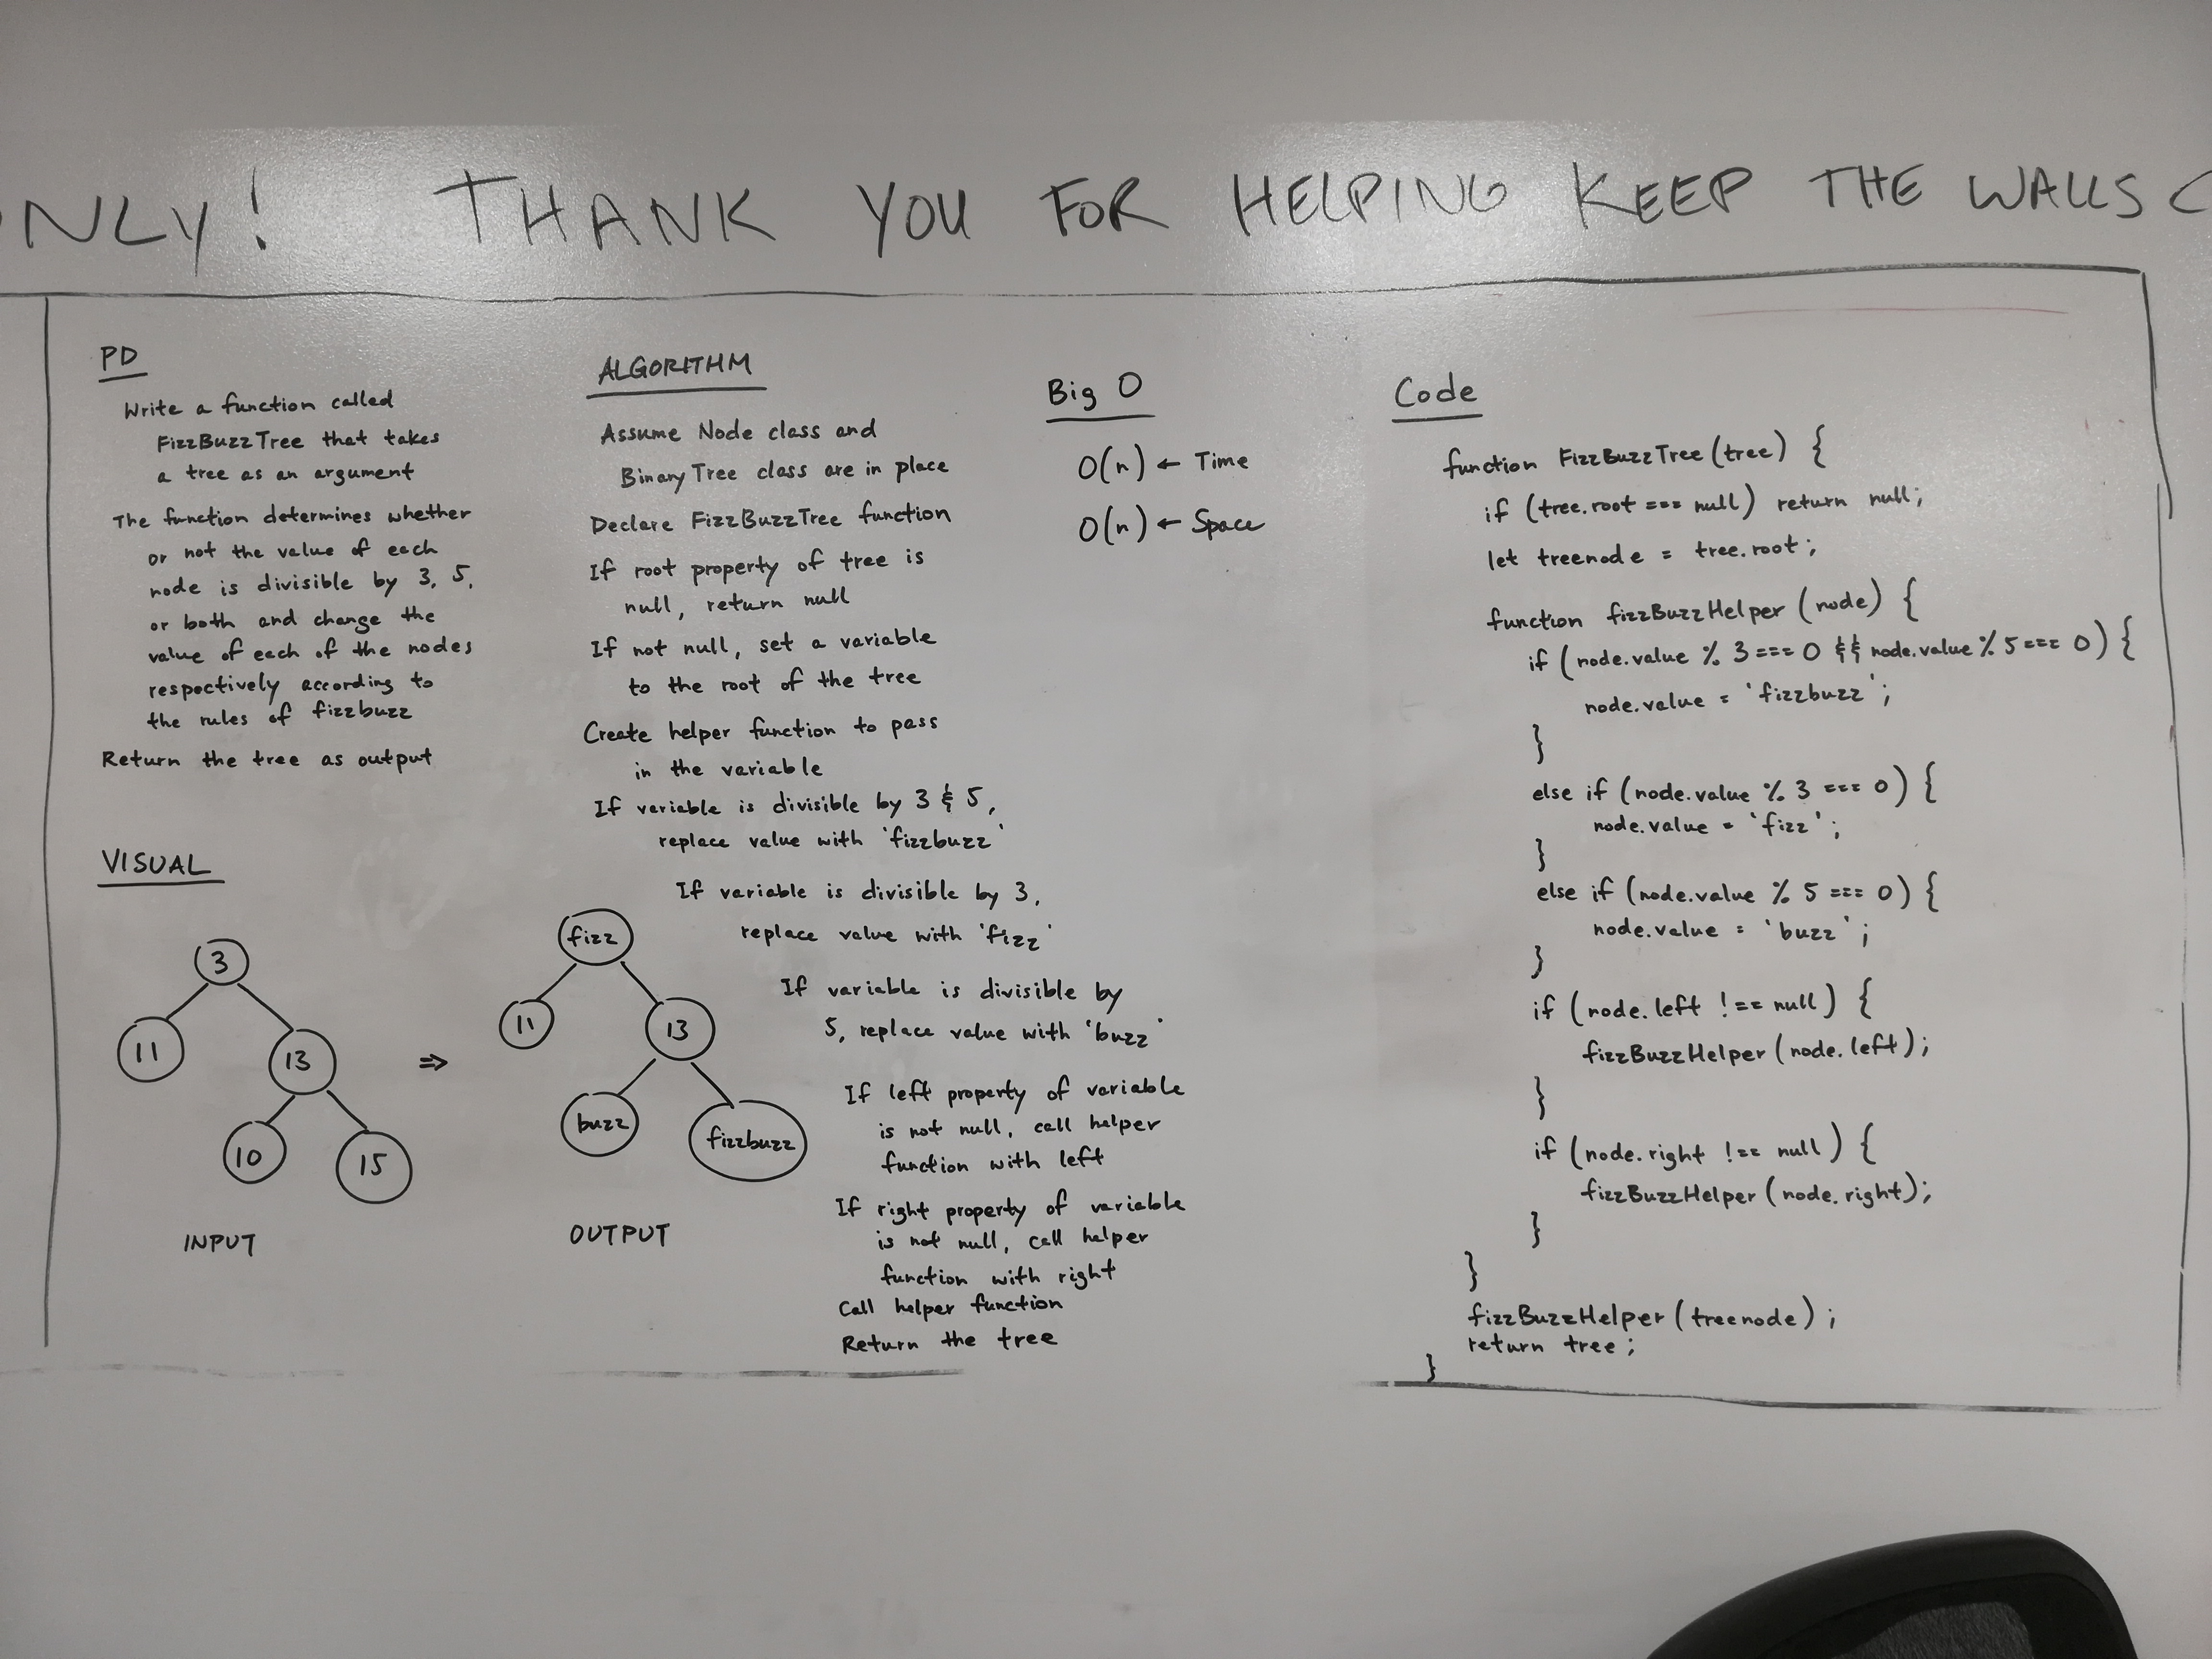 ONLY! THANK YOU FOR HELPING KEEP THE WALLS C
PD
Write a function called
FizzBuzzTree that takes
a tree as an argument
The function determines whether
or not the value of each
node is divisible by 3, 5,
or both and change the
value of each of the nodes
respectively according to
the rules of fizzbuzz
Return the tree as output
VISUAL
3
11
13
10
15
INPUT
⇒
fizz
11
13
buzz
fizzbuzz
OUTPUT
ALGORITHM
Assume Node class and
BinaryTree class are in place
Declare FizzBuzzTree function
If root property of tree is
null, return null
If not null, set a variable
to the root of the tree
Create helper function to pass
in the variable
If variable is divisible by 3 & 5,
replace value with 'fizzbuzz'
If variable is divisible by 3,
replace value with 'fizz'
If variable is divisible by
5, replace value with 'buzz'
If left property of variable
is not null, call helper
function with left
If right property of variable
is not null, call helper
function with right
Call helper function
Return the tree
Big O
O(n) ← Time
O(n) ← Space
Code
function FizzBuzzTree(tree) {
if (tree.root === null) return null;
let treenode = tree.root;
function fizzBuzzHelper (node) {
if (node.value % 3 === 0 && node.value % 5 === 0) {
node.value = 'fizzbuzz';
}
else if (node.value % 3 === 0) {
node.value = 'fizz';
}
else if (node.value % 5 === 0) {
node.value = 'buzz';
}
if (node.left !== null) {
fizzBuzzHelper(node.left);
}
if (node.right !== null) {
fizzBuzzHelper(node.right);
}
}
fizzBuzzHelper(treenode);
return tree;
}